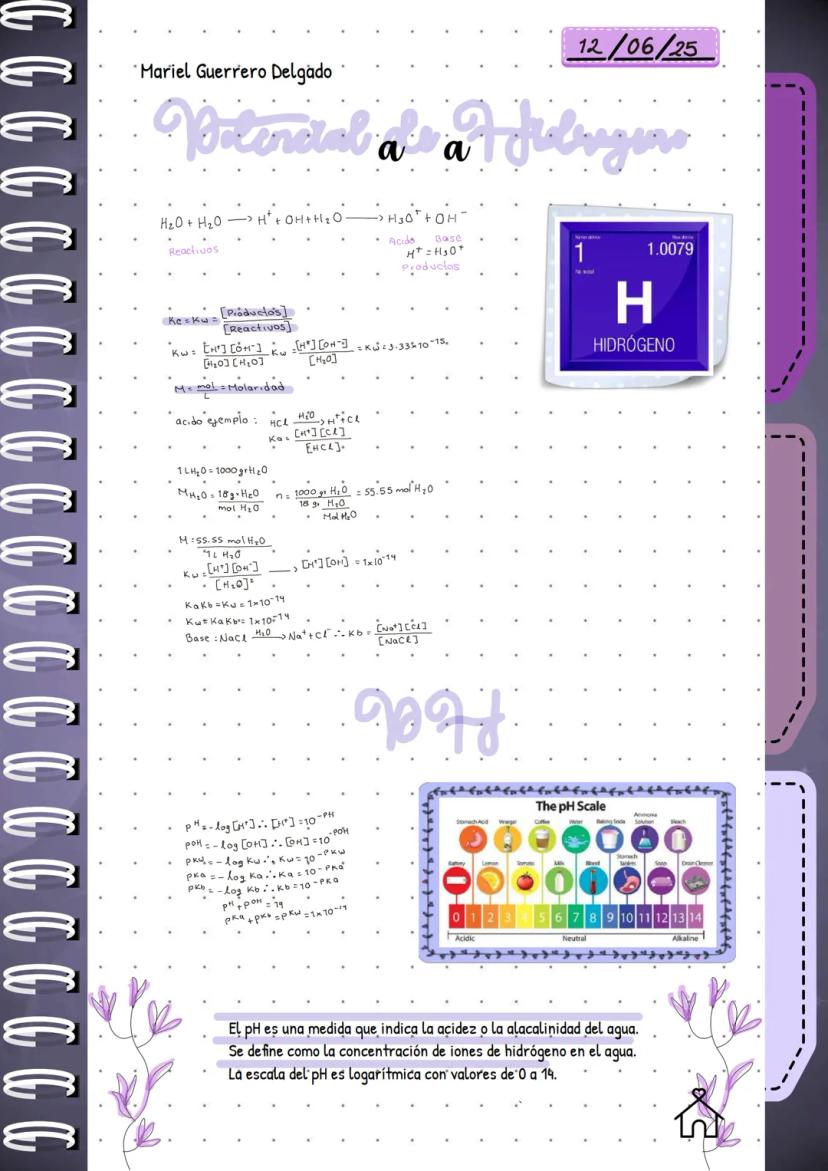 12/06/25
Mariel Guerrero Delgado
Potencial de Hidrogeno
a a
H2O + H2O → H⁺ + OH + H2O → H3O⁺ + OH⁻
Reactivos
Acido Base
H⁺ = H3O⁺
Productos
1 1.0079
H
HIDRÓGENO
Kc = Kw = [Productos] / [Reactivos]
Kw = [H⁺] [OH⁻] / [H2O] [H2O] Kw = [H⁺] [OH⁻] / [H2O] = Kw = 3.33x10⁻¹⁵.
M = mol / L = Molaridad
acido ejemplo : HCl H2O → H⁺ + Cl
Ka = [H⁺] [Cl] / [HCl].
1 L H2O = 1000 gr H2O
M H2O = 18 g. H2O / mol H2O n = 1000 gr H2O / 18 gr H2O / Mol H2O = 55.55 mol H2O
M = 55.55 mol H2O / 1 L H2O
Kw = [H⁺] [OH⁻] / [H2O]² → [H⁺] [OH] = 1x10⁻¹⁴
KaKb = Kw = 1x10⁻¹⁴
Kw = KaKb = 1x10⁻¹⁴
Base : NaCl H2O → Na⁺ + Cl⁻ ∴ Kb = [Na⁺] [Cl] / [NaCl]
PH
pH = -log [H⁺] ∴ [H⁺] = 10⁻ᵖᴴ
pOH = -log [OH] ∴ [OH] = 10⁻ᵖᴼᴴ
pKw = -log Kw ∴ Kw = 10⁻ᵖᴷʷ
pKa = -log Ka ∴ Ka = 10⁻ᵖᴷᵃ
pKb = -log Kb ∴ Kb = 10⁻ᵖᴷᵃ
pH + pOH = 14
pKa + pKb = pKw = 1x10⁻¹⁴
The pH Scale
Stomach Acid Vinegar Coffee Water Baking Soda Ammonia Solution Bleach
Battery Lemon Tomato Milk Blood Stomach Tablets Soap Drain Cleaner
0 1 2 3 4 5 6 7 8 9 10 11 12 13 14
Acidic Neutral Alkaline
El pH es una medida que indica la acidez o la alacalinidad del agua.
Se define como la concentración de iones de hidrógeno en el agua.
La escala del pH es logarítmica con valores de 0 a 14.